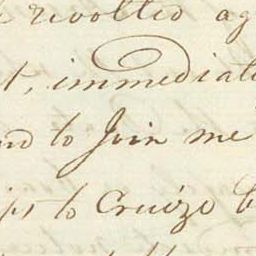 revolted ag
t, immediat
nd to Join me
ips to Cruize t